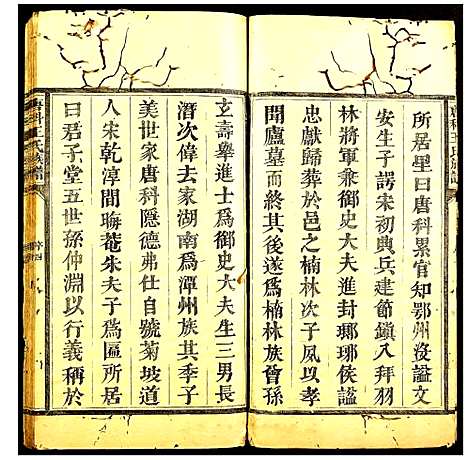 所居里曰唐科累官知鄂州沒諡文
安生子諤宋初典兵建節鎮入拜羽
林將軍兼御史大夫進封瑯琊侯諡
忠獻歸葬於邑之楠林次子夙以孝
聞廬墓而終其後遂爲楠林族曾孫
玄壽舉進士爲御史大夫生三男長
潛次偉去家湖南爲潭州族其季子
美世家唐科隱德弗仕自號菊坡道
人宋乾淳間晦菴朱夫子爲匾所居
曰君子堂五世孫仲淵以行義稱於
唐科王氏族譜